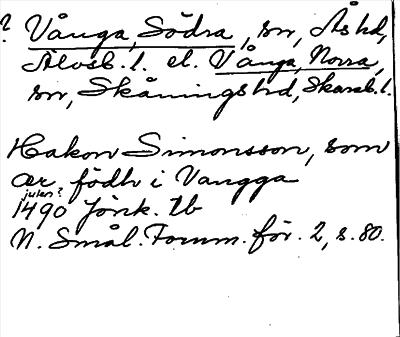 ? Vånga, Södra, sn, Ås hd,
Älvsb. l. el. Vånga, Norra,
sn, Skånings hd, Skarab. l.
Hakon Simonsson, som
ær födh i Vangga
julen?
1490 Jönk. Tb
N. Smål. Fornm. för. 2, s. 80.